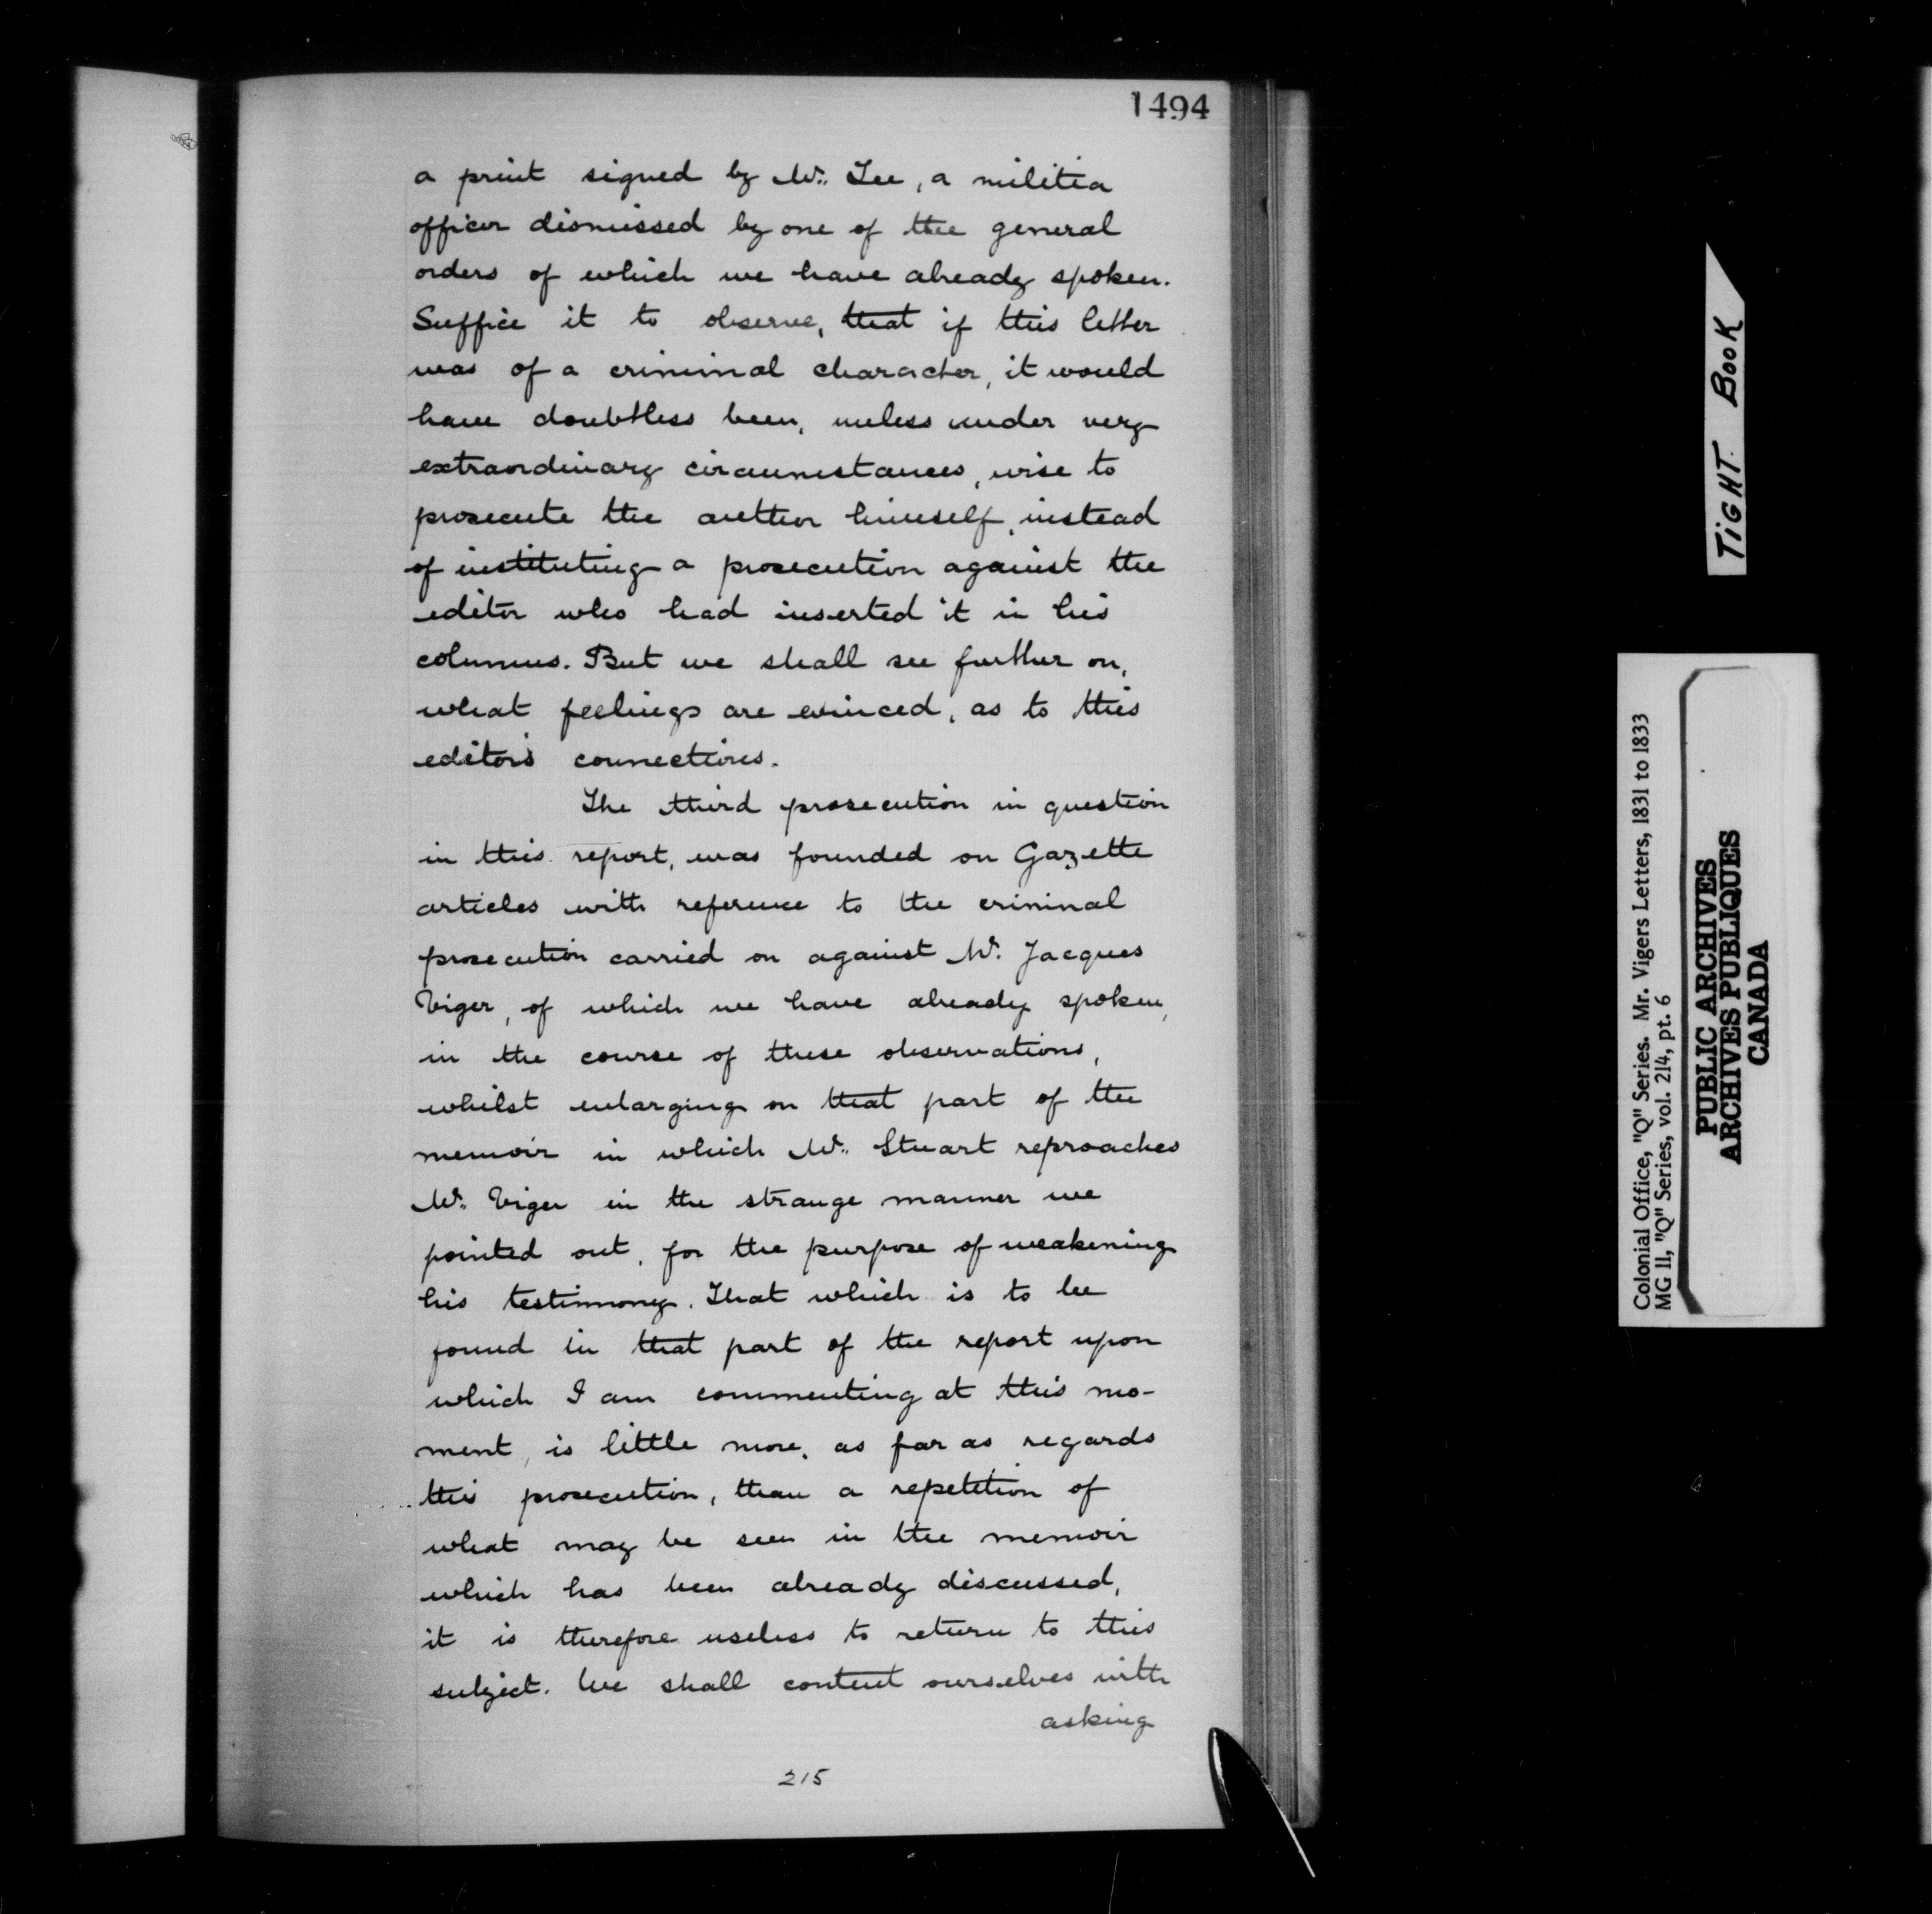 1494
a print signed by Mr. Lee, a militia
officer dismissed by one of the general
orders of which we have already spoken.
Suffice it to observe, that if this letter
was of a criminal character, it would
have doubtless been, unless under very
extraordinary circumstances, wise to
prosecute the author himself, instead
of instituting a prosecution against the
editor who had inserted it in his
columns. But we shall see further on,
what feelings are evinced, as to this
editor's connections.
The third prosecution in question
in this report, was founded on Gazette
articles with reference to the criminal
prosecution carried on against Mr. Jacques
Viger, of which we have already spoken,
in the course of these observations,
whilst enlarging on that part of the
memoir in which Mr. Stuart reproaches
Mr. Viger in the strange manner we
pointed out, for the purpose of weakening
his testimony. That which is to be
found in that part of the report upon
which I am commenting at this mo-
ment, is little more, as far as regards
this prosecution, than a repetition of
what may be seen in the memoir
which has been already discussed,
it is therefore useless to return to this
subject. We shall content ourselves with
asking
215
TIGHT BOOK
Colonial Office, "Q" Series. Mr. Vigers Letters, 1831 to 1833
MG 11, "Q" Series, vol. 214, pt. 6
PUBLIC ARCHIVES
ARCHIVES PUBLIQUES
CANADA